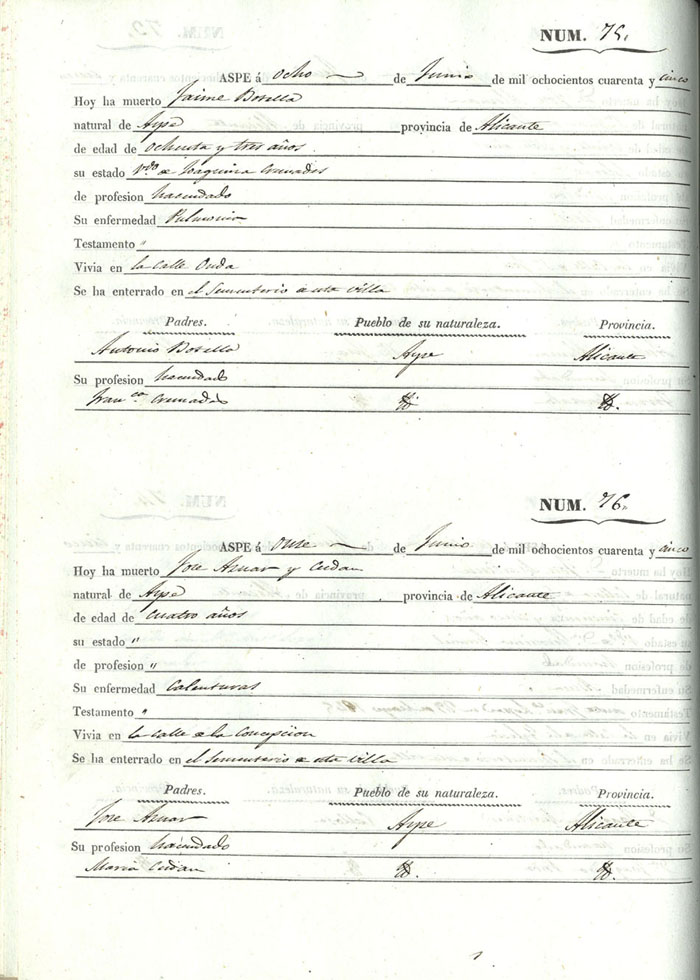 NUM. 75.
ASPE á Ocho de Junio de mil ochocientos cuarenta y cinco
Hoy ha muerto Jaime Botella
natural de Aspe provincia de Alicante
de edad de Ochenta y tres años
su estado Vdo de Joaquina Cremades
de profesion hacendado
Su enfermedad Pulmonia
Testamento "
Vivia en la Calle Onda
Se ha enterrado en el Sementerio de esta Villa
Padres. Pueblo de su naturaleza. Provincia.
Antonio Botella Aspe Alicante
Su profesion hacendado
Fran.ca Cremades id. id.
NUM. 76.
ASPE á Onse de Junio de mil ochocientos cuarenta y cinco
Hoy ha muerto Jose Aznar y
natural de Aspe provincia de Alicante
de edad de Cuatro años
su estado "
de profesion "
Su enfermedad Calenturas
Testamento "
Vivia en la Calle de la Concepcion
Se ha enterrado en el Sementerio de esta Villa
Padres. Pueblo de su naturaleza. Provincia.
Jose Aznar Aspe Alicante
Su profesion hacendado
Maria id. id.